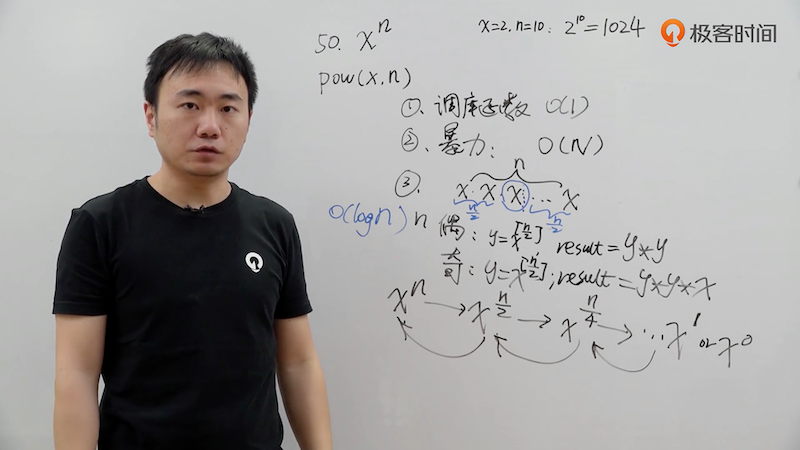 50. xⁿ
x=2, n=10: 2¹⁰=1024
极客时间
pow(x,n)
①. 调库函数 O(1)
②. 暴力: O(N)
n
③. x·x·x·…·x
n/2 n/2
O(logn)
n 偶: y=x^[n/2] result=y*y
奇: y=x^[n/2]; result=y*y*x
xⁿ → x^(n/2) → x^(n/4) → …x¹ or x⁰